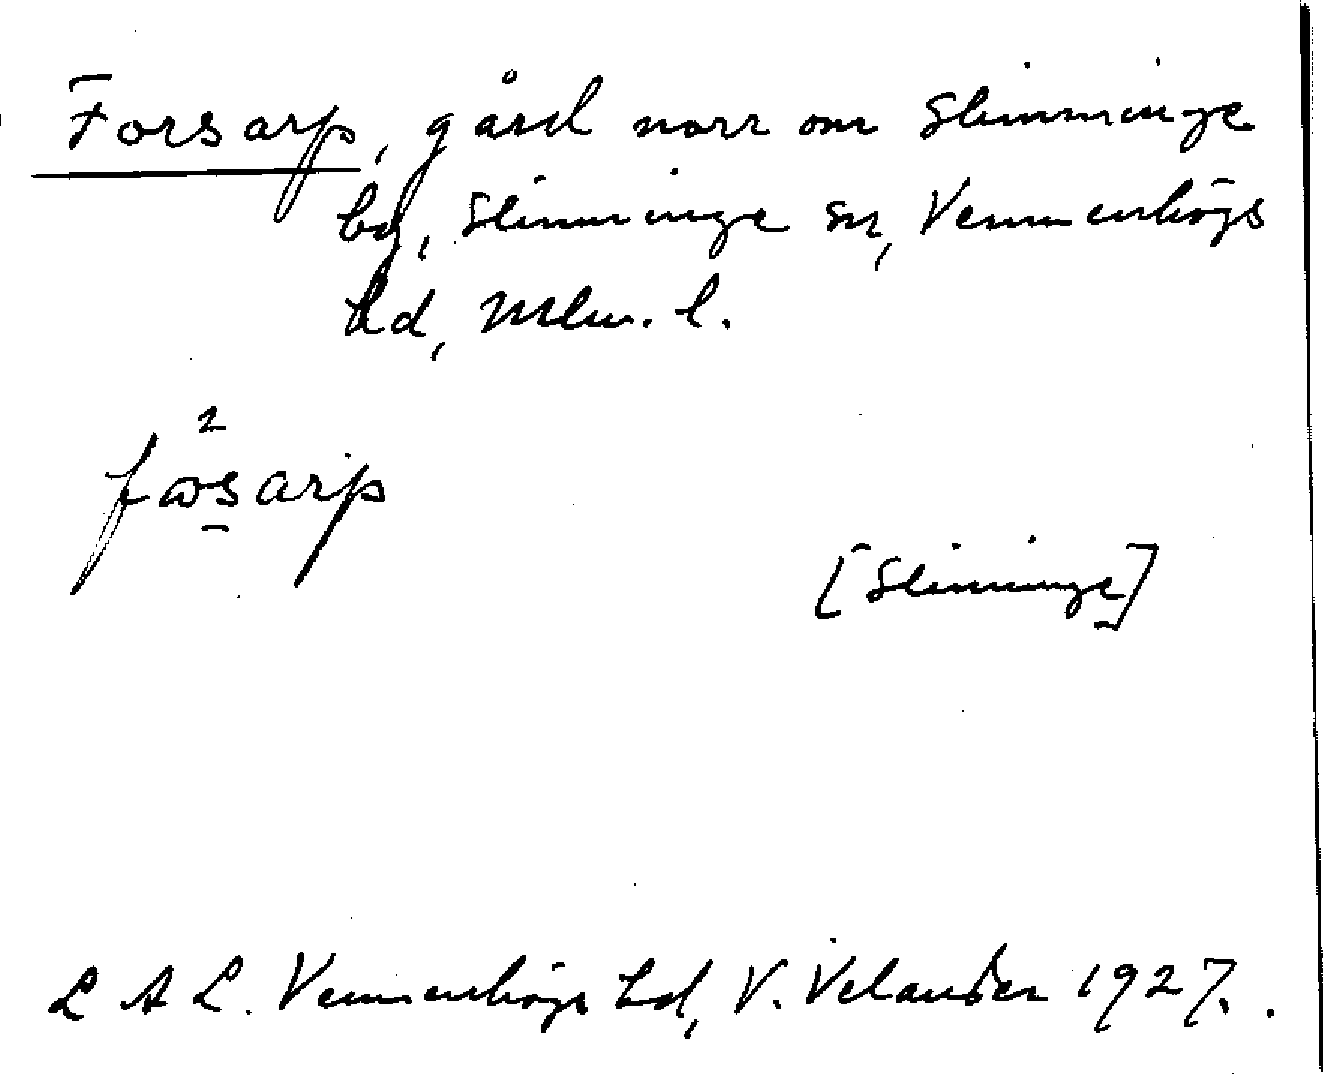 Forsarp, gård norr om Slimminge
by, Slimminge sn, Vemmenhögs
hd, Mlm. l.
2
fɷsarp
[Slimminge]
L A L. Vemmenhögs hd, V. Velander 1927.